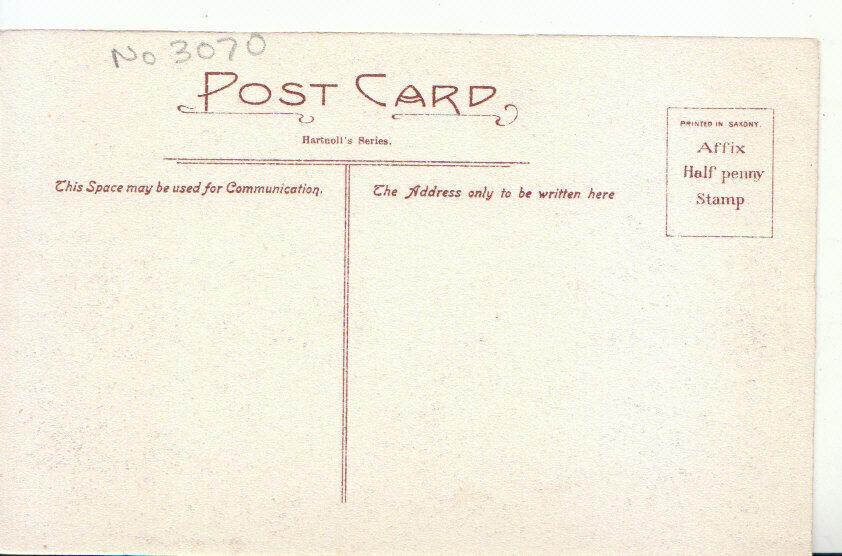 No 3070
POST CARD
Hartnoll's Series.
This Space may be used for Communication.
The Address only to be written here
PRINTED IN SAXONY.
Affix
Half penny
Stamp